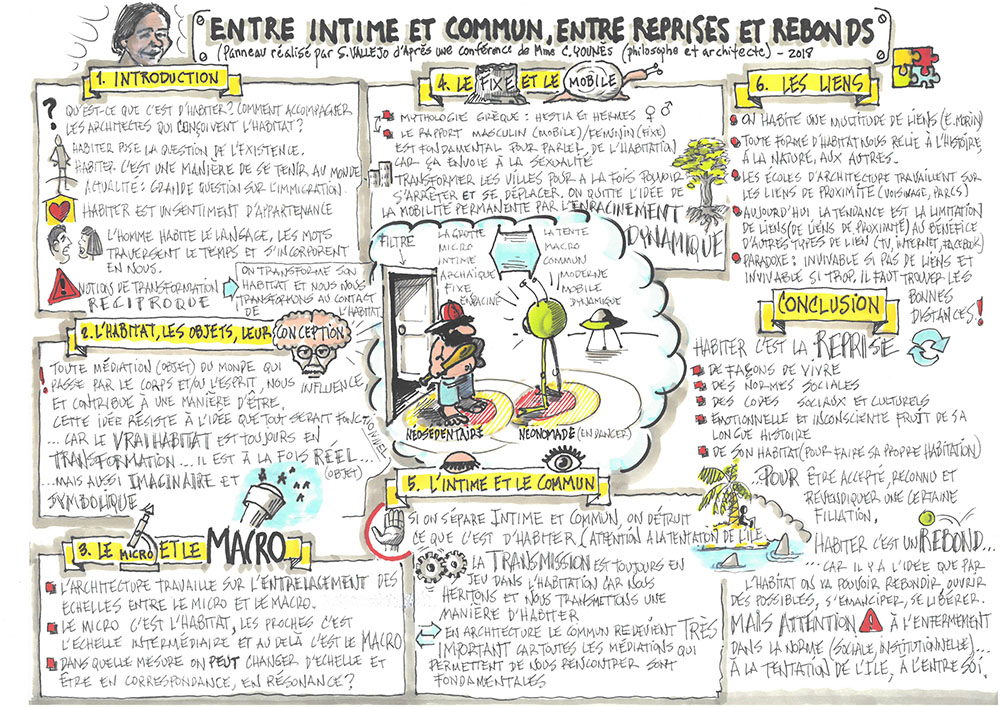 ENTRE INTIME ET COMMUN, ENTRE REPRISES ET REBONDS
(Panneau réalisé par S. VALLEJO d'après une conférence de Mme C. YOUNÈS (philosophe et architecte) - 2018
1. INTRODUCTION
? QU'EST-CE QUE C'EST D'HABITER? COMMENT ACCOMPAGNER
LES ARCHITECTES QUI CONÇOIVENT L'HABITAT?
HABITER POSE LA QUESTION DE L'EXISTENCE.
HABITER C'EST UNE MANIÈRE DE SE TENIR AU MONDE
ACTUALITÉ: GRANDE QUESTION SUR L'IMMIGRATION
HABITER EST UN SENTIMENT D'APPARTENANCE
L'HOMME HABITE LE LANGAGE, LES MOTS
TRAVERSENT LE TEMPS ET S'INCORPORENT
EN NOUS.
! NOTIONS DE TRANSFORMATION
RÉCIPROQUE
ON TRANSFORME SON
HABITAT ET NOUS NOUS
TRANSFORMONS AU CONTACT
DE L'HABITAT
2. L'HABITAT, LES OBJETS, LEUR CONCEPTION
! TOUTE MÉDIATION (OBJET) DU MONDE QUI
PASSE PAR LE CORPS ET/OU L'ESPRIT, NOUS INFLUENCE
ET CONTRIBUE À UNE MANIÈRE D'ÊTRE.
CETTE IDÉE RÉSISTE À L'IDÉE QUE TOUT SERAIT FONCTIONNEL
... CAR LE VRAI HABITAT EST TOUJOURS EN
TRANSFORMATION... IL EST À LA FOIS RÉEL...
(OBJET)
... MAIS AUSSI IMAGINAIRE ET
SYMBOLIQUE
3. LE MICRO ET LE MACRO
L'ARCHITECTURE TRAVAILLE SUR L'ENTRELACEMENT DES
ECHELLES ENTRE LE MICRO ET LE MACRO.
LE MICRO C'EST L'HABITAT, LES PROCHES C'EST
L'ECHELLE INTERMÉDIAIRE ET AU DELÀ C'EST LE MACRO
DANS QUELLE MESURE ON PEUT CHANGER D'ECHELLE ET
ÊTRE EN CORRESPONDANCE, EN RÉSONANCE?
4. LE FIXE ET LE MOBILE
MYTHOLOGIE GRÈQUE: HESTIA ET HERMES ♀ ♂
LE RAPPORT MASCULIN (MOBILE)/FEMININ (FIXE)
EST FONDAMENTAL POUR PARLER DE L'HABITATION
CAR ÇA ENVOIE À LA SEXUALITÉ
TRANSFORMER LES VILLES POUR À LA FOIS POUVOIR
S'ARRÊTER ET SE DÉPLACER, ON QUITTE L'IDÉE DE
LA MOBILITÉ PERMANENTE PAR L'ENRACINEMENT
DYNAMIQUE
FILTRE
LA GROTTE
MICRO
INTIME
ARCHAÏQUE
FIXE
ENRACINÉ
LA TENTE
MACRO
COMMUN
MODERNE
MOBILE
DYNAMIQUE
NEOSÉDENTAIRE
NEONOMADE (EN DANGER)
5. L'INTIME ET LE COMMUN
SI ON SÉPARE INTIME ET COMMUN, ON DÉTRUIT
CE QUE C'EST D'HABITER (ATTENTION À LA TENTATION DE L'ILE)
LA TRANSMISSION EST TOUJOURS EN
JEU DANS L'HABITATION CAR NOUS
HÉRITONS ET NOUS TRANSMETTONS UNE
MANIÈRE D'HABITER
EN ARCHITECTURE LE COMMUN REDEVIENT TRÈS
IMPORTANT CAR TOUTES LES MÉDIATIONS QUI
PERMETTENT DE NOUS RENCONTRER SONT
FONDAMENTALES
6. LES LIENS
ON HABITE UNE MULTITUDE DE LIENS (E. MORIN)
TOUTE FORME D'HABITAT NOUS RELIE À L'HISTOIRE,
À LA NATURE, AUX AUTRES.
LES ÉCOLES D'ARCHITECTURE TRAVAILLENT SUR
LES LIENS DE PROXIMITÉ (VOISINAGE, PARCS)
AUJOURD'HUI LA TENDANCE EST LA LIMITATION
DE LIENS (DE LIENS DE PROXIMITÉ) AU BENEFICE
D'AUTRES TYPES DE LIEN (TV, INTERNET, FACEBOOK)
PARADOXE: INVIVABLE SI PAS DE LIENS ET
INVIVABLE SI TROP, IL FAUT TROUVER LES
BONNES
DISTANCES!
CONCLUSION
HABITER C'EST LA REPRISE
DE FAÇONS DE VIVRE
DES NORMES SOCIALES
DES CODES SOCIAUX ET CULTURELS
ÉMOTIONNELLE ET INCONSCIENTE FRUIT DE SA
LONGUE HISTOIRE
DE SON HABITAT (POUR FAIRE SA PROPRE HABITATION)
... POUR ÊTRE ACCEPTÉ, RECONNU ET
REVENDIQUER UNE CERTAINE
FILIATION,
HABITER C'EST UN REBOND...
... CAR IL Y A L'IDÉE QUE PAR
L'HABITAT ON VA POUVOIR REBONDIR, OUVRIR
DES POSSIBLES, S'EMANCIPER, SE LIBÉRER.
MAIS ATTENTION ! À L'ENFERMEMENT
DANS LA NORME (SOCIALE, INSTITUTIONNELLE)...
À LA TENTATION DE L'ILE, À L'ENTRE SOI.